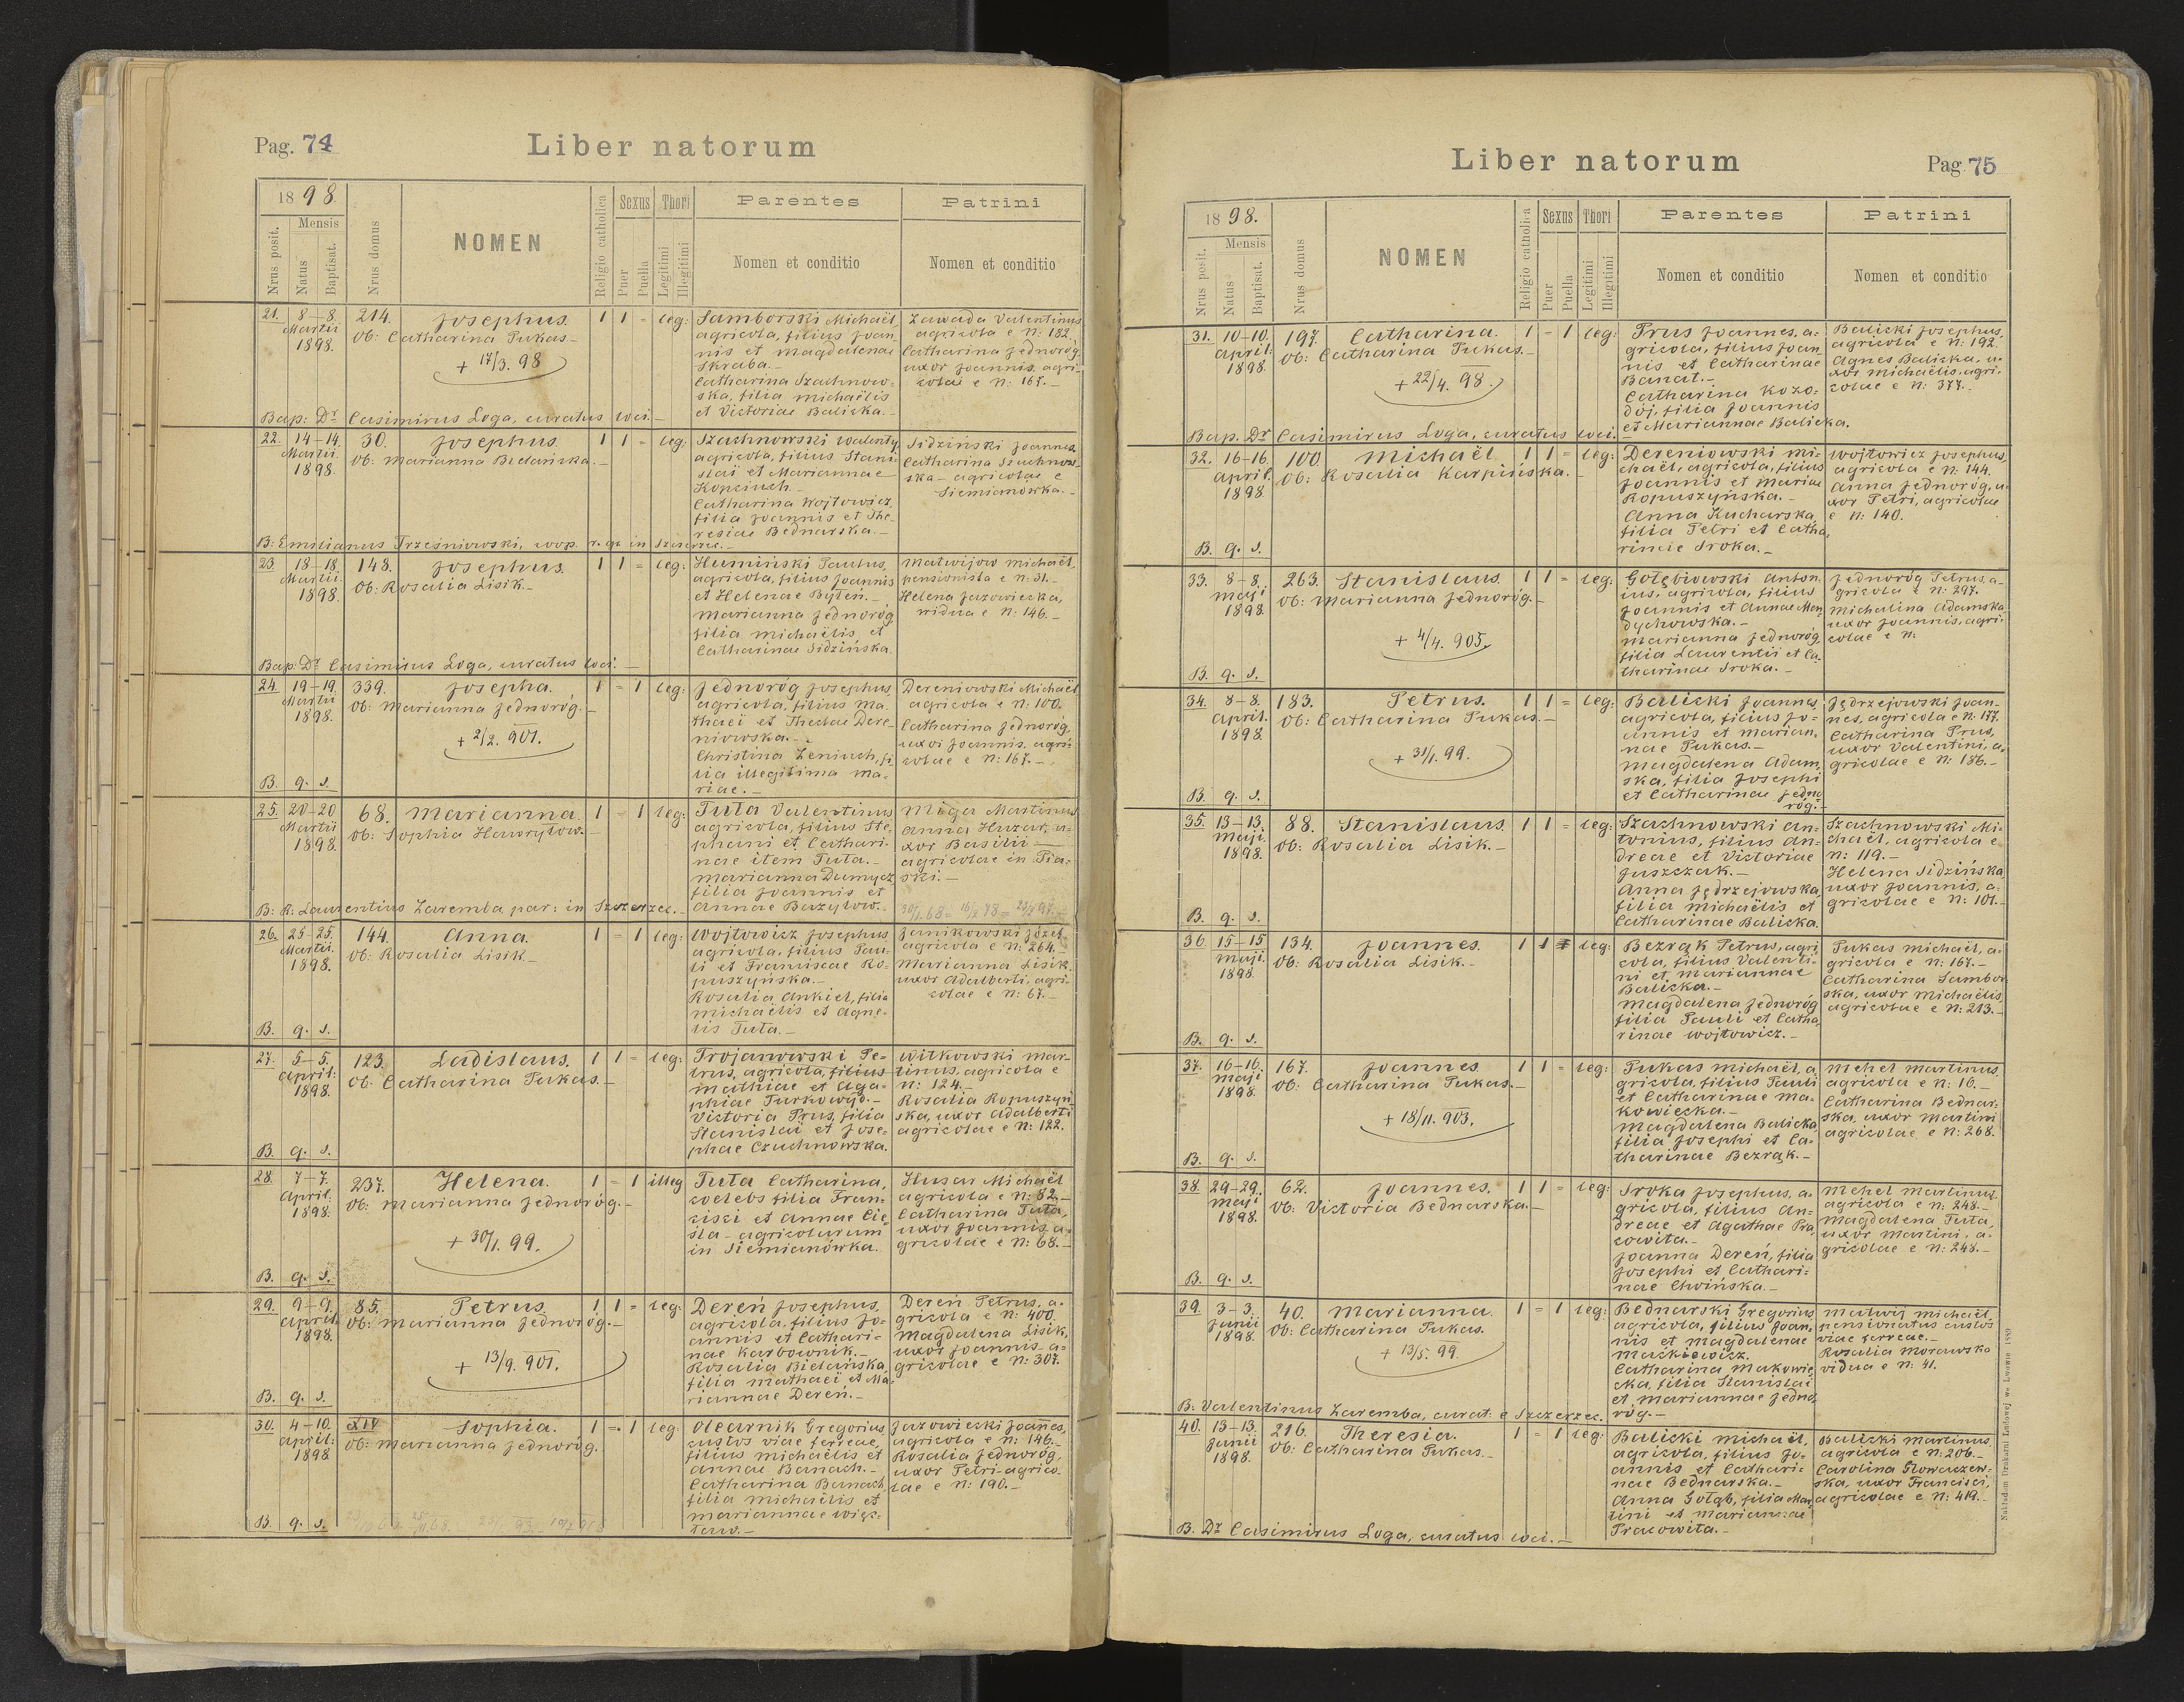 Pag. 74
Liber natorum
1898.
Nrus posit.
Mensis
Natus
Baptisat.
Nrus domus
NOMEN
Religio catholica
Sexus
Puer
Puella
Thori
Legitimi
Illegitimi
Parentes
Nomen et conditio
Patrini
Nomen et conditio
21. 8-8. Martii 1898. 214. Josephus. 1 1 = leg:
Ob: Catharina Pukas.-
+ 17/3. 98
Samborski Michaël,
agricola, filius Joan
nis et Magdalenae
Skraba.-
Catharina Szachnow-
ska, filia Michaëlis
et Victoriae Balicka.-
Zawada Valentinus
agricola e n: 182.
Catharina Jednoróg,
uxor Joannis, agri-
colae e n: 167.-
Bap: Dr Casimirus Loga, curatus loci.-
22. 14-14. Martii. 1898. 30. Josephus. 1 1 = leg:
Ob: Marianna Bielańska.-
Szachnowski Walenty,
agricola, filius Stani-
slai et Mariannae
Kopciuch.-
Catharina Wojtowicz,
filia Joannis et The-
resiae Bednarska.-
Sidziński Joannes,
Catharina Szachnow-
ska - agricolae e
Siemianówka.-
B: Emilianus Trześniowski, coop. r. gr. in Szczerzec.-
23. 18-18. Martii. 1898. 148. Josephus. 1 1 = leg:
Ob: Rosalia Lisik.-
Humiński Paulus,
agricola, filius Joannis
et Helenae Byteń.-
Marianna Jednoróg
filia Michaëlis et
Catharinae Sidzińska.
Matwijow Michaël,
pensionista e n: 31.-
Helena Jazowiecka,
vidua e n: 146.-
Bap: Dr Casimirus Loga, curatus loci.-
24. 19-19. Martii 1898. 339. Josepha. 1 = 1 leg:
Ob: Marianna Jednoróg.-
+ 2/2. 901.
Jednoróg Josephus,
agricola, filius Ma
thaei et Theclae Dere-
niowska.-
Christina Zeniuch, fi
lia illegitima Ma-
riae.-
Dereniowski Michaël
agricola e n: 100.
Catharina Jednoróg,
uxor Joannis, agri-
colae e n: 167.-
B. q. s.
25. 20-20 Martii 1898. 68. Marianna. 1 = 1 leg:
Ob: Sophia Hawrylow.-
Tuta Valentinus
agricola, filius Ste-
phani et Cathari-
nae item Tuta.-
Marianna Dumycz
filia Joannis et
Annae Bazylow.-
Miga Martinus
Anna Huzar, u-
xor Basilii -
agricolae in Pia-
ski.-
B: R: Laurentius Zaremba par: in Szczerzec.-
26. 25-25. Martii. 1898. 144. Anna. 1 = 1 leg:
Ob: Rosalia Lisik.-
Wojtowicz Josephus
agricola, filius Pau-
li et Franciscae Ro-
puszyńska.-
Rosalia Ankiel, filia
Michaëlis et Agne-
tis Tuta.-
Janikowski Józef,
agricola e n: 264.-
Marianna Lisik,
uxor Adalberti, agri-
colae e n: 67.-
B. q. s.
27. 5-5. April: 1898. 123. Ladislaus. 1 1 = leg:
Ob: Catharina Pukas.-
Trojanowski Pe-
trus, agricola, filius
Mathiae et Aga-
phiae Turkowyd.-
Victoria Prus, filia
Stanislai et Jose-
phae Czuchnowska.
Witkowski Mar-
tinus, agricola e
n: 124.-
Rosalia Ropuszyń-
ska, uxor Adalberti
agricolae e n: 122.
B. q. s.
28. 7-7. April. 1898. 237. Helena. 1 = 1 illeg
Ob: Marianna Jednoróg.-
+ 30/1. 99.
Tuta Catharina,
coelebs filia Fran-
cisci et Annae Cie-
śla - agricolarum
in Siemianówka.
Husar Michaël
agricola e n: 82.-
Catharina Tuta,
uxor Joannis, a-
gricolae e n: 68.-
B. q. s.
29. 9-9. April. 1898. 85. Petrus. 1 1 = leg:
Ob: Marianna Jednoróg.-
+ 13/9. 901.
Dereń Josephus,
agricola, filius Jo-
annis et Cathari-
nae Karbownik.-
Rosalia Bielańska,
filia Mathaei et Ma-
riannae Dereń.-
Dereń Petrus, a-
gricola e n: 400.
Magdalena Lisik,
uxor Joannis - a-
gricolae e n: 307.
B. q. s.
30. 4-10. April: 1898 XIV Sophia. 1 = 1 leg:
Ob: Marianna Jednoróg.
Olearnik Gregorius,
custos viae ferreae,
filius Michaëlis et
Annae Banach.-
Catharina Banach,
filia Michaëlis et
Mariannae Więc-
ław.-
Jazowiecki Joannes,
agricola e n: 146.-
Rosalia Jednoróg,
uxor Petri - agrico-
lae e n: 190.-
B. q. s.
Liber natorum
Pag. 75
1898.
Nrus posit.
Mensis
Natus
Baptisat.
Nrus domus
NOMEN
Religio catholica
Sexus
Puer
Puella
Thori
Legitimi
Illegitimi
Parentes
Nomen et conditio
Patrini
Nomen et conditio
31. 10-10. April: 1898. 197. Catharina. 1 - 1 leg:
Ob: Catharina Pukas.-
+ 22/4. 98.
Prus Joannes, a-
gricola, filius Joan
nis et Catharinae
Banat.-
Catharina Kozo-
dój, filia Joannis
et Mariannae Balicka.
Balicki Josephus,
agricola e n: 192.
Agnes Balicka, u-
xor Michaëlis, agri-
colae e n: 377.-
Bap. Dr Casimirus Loga, curatus loci.-
32. 16-16. April. 1898. 100. Michaël. 1 1 = leg:
Ob: Rosalia Karpińska.-
Dereniowski Mi-
chaël, agricola, filius
Joannis et Mariae
Ropuszyńska.-
Anna Kucharska,
filia Petri et Catha-
rinae Sroka.-
Wojtowicz Josephus,
agricola e n: 144.
Anna Jednoróg, u-
xor Petri, agricolae
e n: 140.
B. q. s.
33. 8-8. Maji 1898. 263. Stanislaus. 1 1 = leg:
Ob: Marianna Jednoróg.-
+ 4/4. 905.
Gołębiowski Anton
ius, agricola, filius
Joannis et Annae Man
dychowska.-
Marianna Jednoróg,
filia Laurentii et Ca-
tharinae Sroka.-
Jednoróg Petrus, a-
gricola e n: 297.
Michalina Adamska,
uxor Joannis, agri-
colae e n:
B. q. s.
34. 8-8. April. 1898. 183. Petrus. 1 1 = leg:
Ob: Catharina Pukas.-
+ 31/1. 99.
Balicki Joannes,
agricola, filius Jo-
annis et Marian-
nae Pukas.-
Magdalena Adam
ska, filia Josephi
et Catharinae Jedno
róg.-
Jędrzejowski Joan-
nes, agricola e n: 177.
Catharina Prus,
uxor Valentini, a-
gricolae e n: 186.-
B. q. s.
35. 13-13. Maji. 1898. 88. Stanislaus. 1 1 = leg:
Ob: Rosalia Lisik.-
Szachnowski An-
tonius, filius An-
dreae et Victoriae
Juszczak.-
Anna Jędrzejowska,
filia Michaëlis et
Catharinae Balicka.
Szachnowski Mi-
chaël, agricola e
n: 119.-
Helena Sidzińska
uxor Joannis, a-
gricolae e n: 101.-
B. q. s.
36. 15-15 Maji. 1898. 134. Joannes. 1 1 = leg:
Ob: Rosalia Lisik.-
Bezrąk Petrus, agri
cola, filius Valenti-
ni et Mariannae
Balicka.-
Magdalena Jednoróg
filia Pauli et Catha-
rinae Wojtowicz.-
Pukas Michaël, a-
gricola e n: 167.-
Catharina Sambor
ska, uxor Michaëlis,
agricolae e n: 213.-
B. q. s.
37. 16-16. Maji 1898. 167. Joannes. 1 1 = leg:
Ob: Catharina Pukas.-
+ 18/11. 903.
Pukas Michaël, a
gricola, filius Pauli
et Catharinae Ma-
kowiecka.-
Magdalena Balicka
filia Josephi et Ca-
tharinae Bezrąk.-
Mehel Martinus,
agricola e n: 16.-
Catharina Bednar-
ska, uxor Martini
agricolae e n: 268.
B. q. s.
38. 29-29. Maji 1898. 62. Joannes. 1 1 = leg:
Ob: Victoria Bednarska.-
Sroka Josephus, a-
gricola, filius An-
dreae et Agathae Pra
cowita.-
Joanna Dereń, filia
Josephi et Cathari-
nae Chwińska.-
Mehel Martinus,
agricola e n: 248.-
Magdalena Tuta,
uxor Martini, a-
gricolae e n: 248.-
B. q. s.
39. 3-3. Junii 1898. 40. Marianna. 1 = 1 leg:
Ob: Catharina Pukas.
+ 13/5. 99.
Bednarski Gregorius
agricola, filius Joan-
nis et Magdalenae
Maćkiewicz.
Catharina Makowie-
cka, filia Stanislai
et Mariannae Jedno-
róg.-
Matwij Michaël
pensionatus custos
viae ferreae.-
Rosalia Morawska
vidua e n: 41.
B: Valentinus Zaremba, curat: e Szczerzec.
40. 13-13. Junii 1898. 216. Theresia. 1 = 1 leg:
Ob: Catharina Pukas.-
Balicki Michaël,
agricola, filius Jo-
annis et Cathari-
nae Bednarska.-
Anna Gołąb, filia Mar
tini et Mariannae
Pracowita.-
Balicki Martinus,
agricola e n: 206.-
Carolina Głowaczew-
ska, uxor Francisci,
agricolae e n: 419.-
B. Dr Casimirus Loga, curatus loci.-
Nakładem Drukarni Ludowej we Lwowie 1889